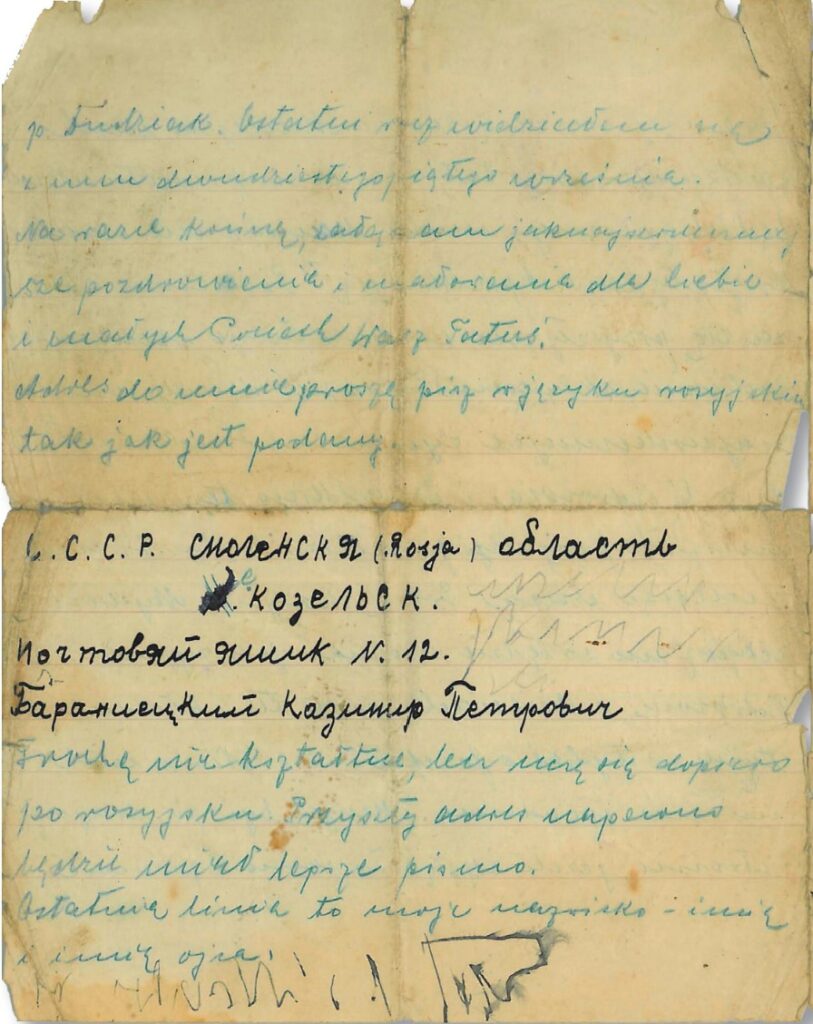 p. Dudziak. Ostatni raz widziałem się
z nim dwudziestego piątego września.
Na razie kończę, załączam jaknajserdeczniej
sze pozdrowienia i ucałowania dla Ciebie
i małych Pociech Wasz Tatuś.
Adres do mnie proszę pisz w języku rosyjskim
tak jak jest podany.
С. С. С. Р. СМОЛЕНСКЯ (Rosja) область
г. КОЗЕЛЬСК.
Почтовяй яшик N. 12.
Бараниецкий Казимир Петрович
Trochę nie kształtne, lecz uczę się dopiero
po rosyjsku. Przyszły adres napewno
będzie miał lepsze pismo.
Ostatnia linia to moje nazwisko - imię
i imię ojca.